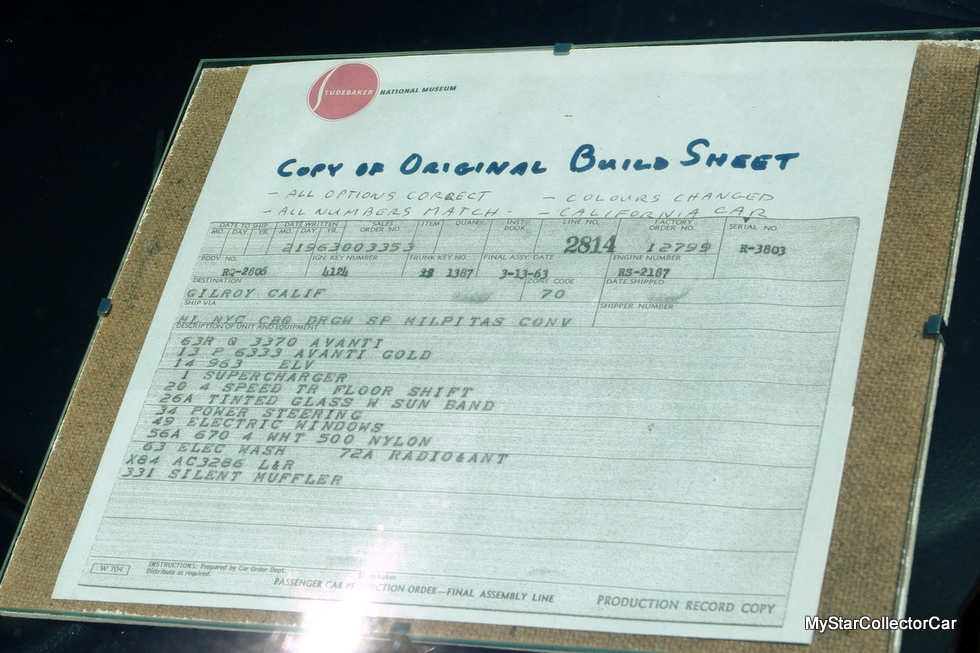 STUDEBAKER NATIONAL MUSEUM
COPY OF ORIGINAL BUILD SHEET
- ALL OPTIONS CORRECT - COLOURS CHANGED
- ALL NUMBERS MATCH - - CALIFORNIA CAR
DATE TO SHIP DATE WRITTEN SALES ORDER NO. ITEM QUAN. INST. BOOK LINE NO. FACTORY ORDER NO. SERIAL NO.
MO. DAY YR. MO. DAY YR.
21963003353 2814 12799 R-3803
BODY NO. IGN. KEY NUMBER TRUNK KEY NO. FINAL ASSY. DATE ENGINE NUMBER
RQ-2806 4124 1387 3-13-63 RS-2187
DESTINATION ZONE CODE DATE SHIPPED
GILROY CALIF 70
SHIP VIA SHIPPER NUMBER
ML NYC CBQ DRGW SP MILPITAS CONV
DESCRIPTION OF UNIT AND EQUIPMENT
63R Q 3370 AVANTI
13 P 6333 AVANTI GOLD
14 963 ELV
1 SUPERCHARGER
20 4 SPEED TR FLOOR SHIFT
26A TINTED GLASS W SUN BAND
34 POWER STEERING
49 ELECTRIC WINDOWS
56A 670 4 WHT 500 NYLON
63 ELEC WASH 72A RADIO&ANT
X84 AC3286 L&R
331 SILENT MUFFLER
W 704 INSTRUCTIONS: Prepared by Car Order Dept.
Distribute as required.
PASSENGER CAR PRODUCTION ORDER—FINAL ASSEMBLY LINE PRODUCTION RECORD COPY
MyStarCollectorCar